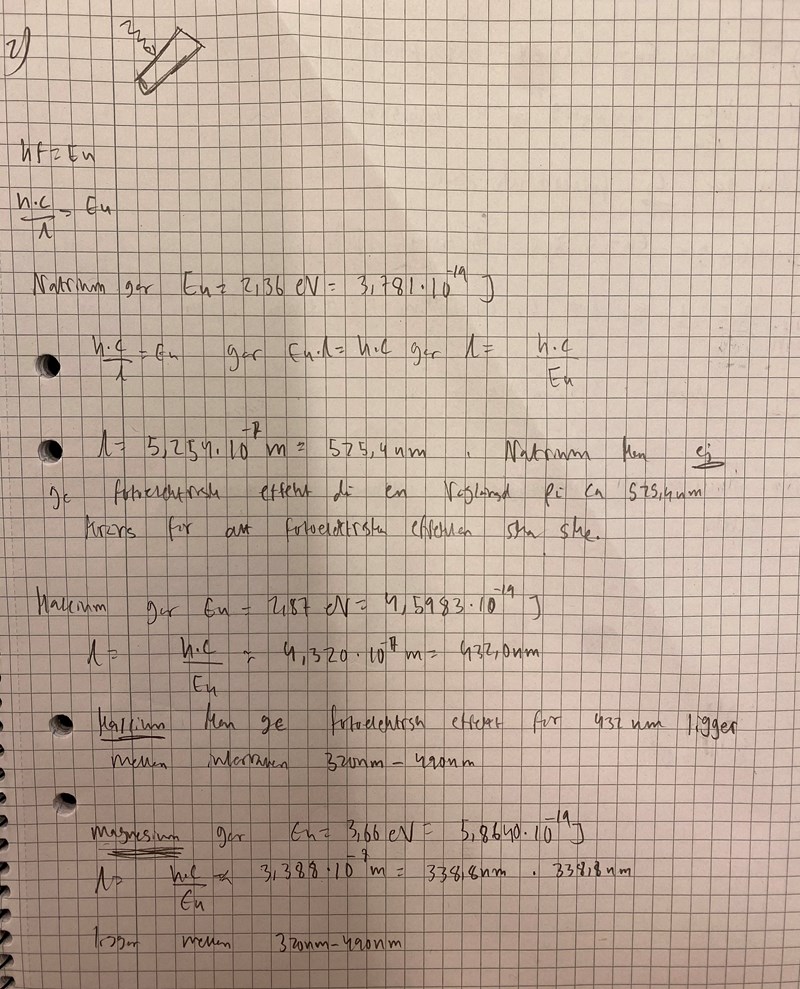 2)
hf = Eu
h·c/λ = Eu
Natrium ger Eu = 2,36 eV = 3,781·10^-19 J
h·c/λ = Eu ger Eu·λ = h·c ger λ = h·c/Eu
λ = 5,254·10^-7 m = 525,4 nm. Natrium kan ej
ge fotoelektrisk effekt då en våglängd på ca 525,4 nm
krävs för att fotoelektriska effekten ska ske.
Kalcium ger Eu = 2,87 eV = 4,5983·10^-19 J
λ = h·c/Eu = 4,320·10^-7 m = 432,0 nm
Kalcium kan ge fotoelektrisk effekt för 432 nm ligger
mellan intervallen 320nm - 490nm
Magnesium ger Eu = 3,66 eV = 5,8640·10^-19 J
λ = h·c/Eu ≈ 3,388·10^-7 m = 338,8nm . 338,8 nm
ligger mellan 320nm-490nm